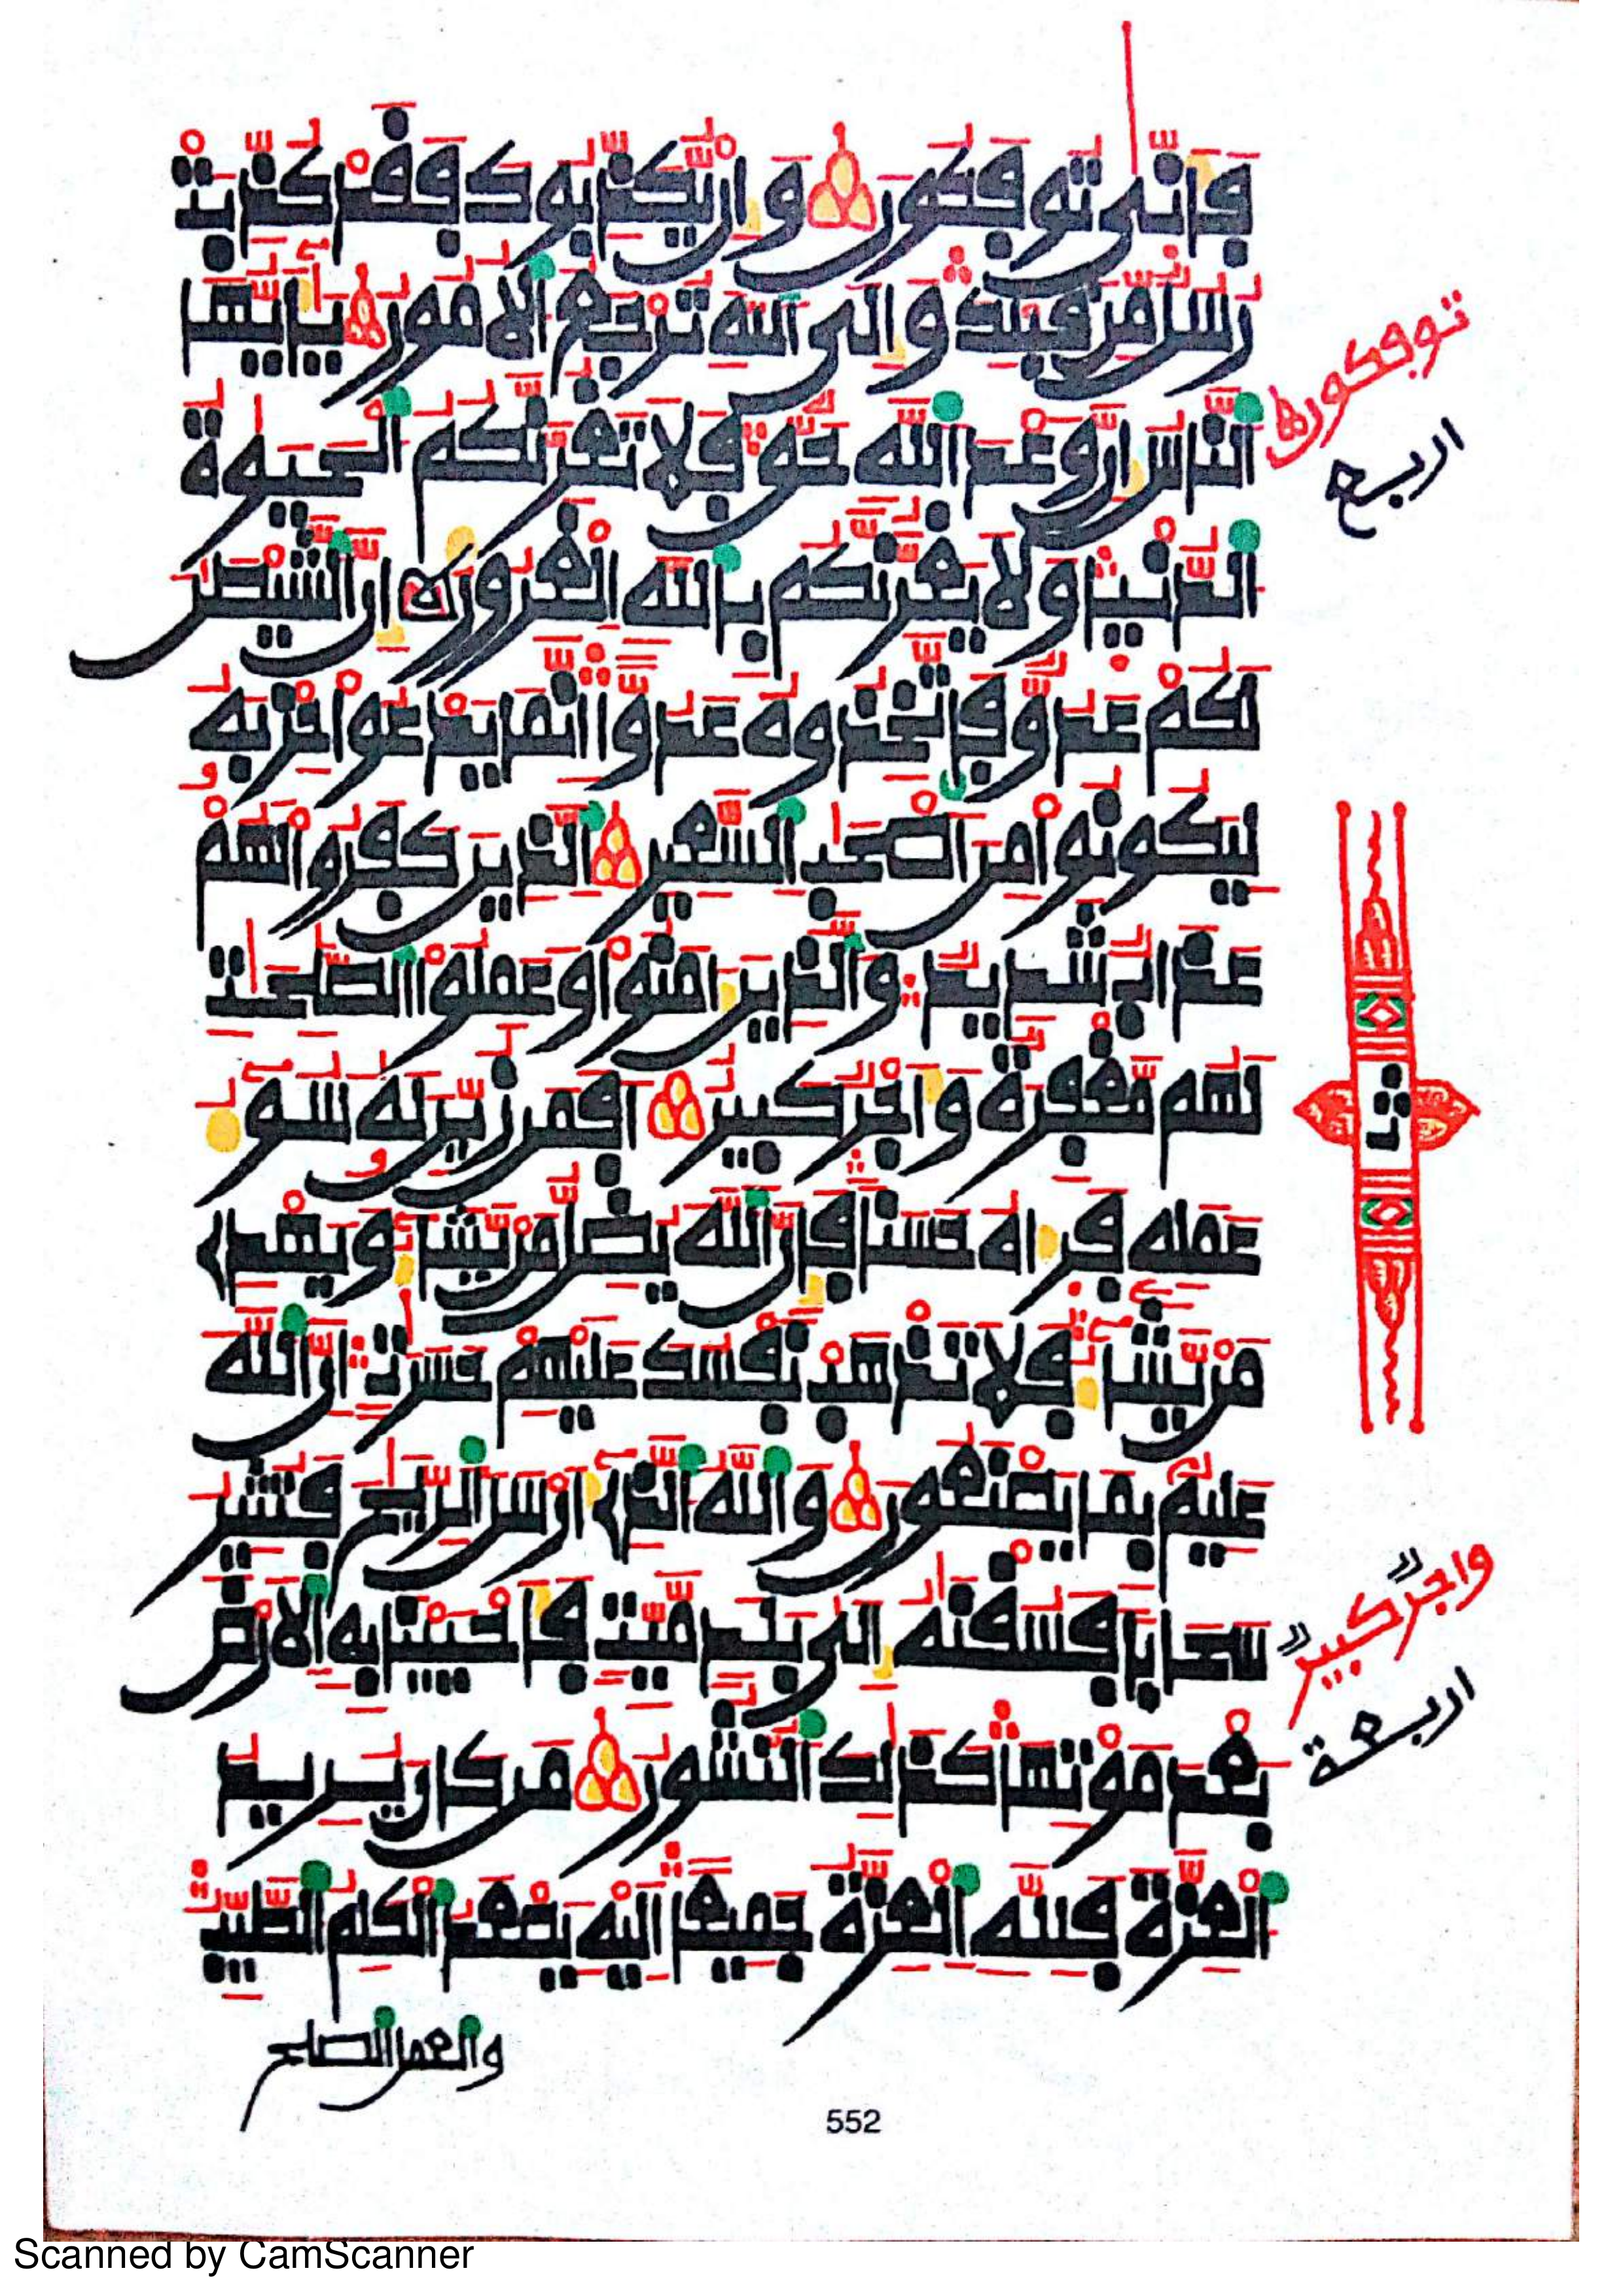 فَأَنّٰى تُوفَكُونَ وَإِنْ يُّكَذِّبُوكَ فَقَدْ كُذِّبَتْ
رُسُلٌ مِّن قَبْلِكَ وَإِلَى اَ۬للَّهِ تُرْجَعُ اُ۬لُامُورُ يَٰأَيُّهَا
اَ۬لنَّاسُ إِنَّ وَعْدَ اَ۬للَّهِ حَقٌّ فَلَا تَغُرَّنَّكُمُ اُ۬لْحَيَوٰةُ
اُ۬لدُّنْيَا وَلَا يَغُرَّنَّكُم بِاللَّهِ اِ۬لْغَرُورُ إِنَّ اَ۬لشَّيْطَٰنَ
لَكُمْ عَدُوٌّ فَاتَّخِذُوهُ عَدُوًّا اِنَّمَا يَدْعُوا حِزْبَهُ
لِيَكُونُوا مِنَ اَصْحَٰبِ اِ۬لسَّعِيرِ اِ۬لذِينَ كَفَرُوا لَهُمْ
عَذَابٌ شَدِيدٌ وَالذِينَ ءَامَنُوا وَعَمِلُوا اُ۬لصَّٰلِحَٰتِ
لَهُم مَّغْفِرَةٌ وَأَجْرٌ كَبِيرٌ اَفَمَن زُيِّنَ لَهُ سُوٓءُ
عَمَلِهِ فَرَءَاهُ حَسَنًا فَإِنَّ اَ۬للَّهَ يُضِلُّ مَنْ يَّشَآءُ وَيَهْدِي
مَنْ يَّشَآءُ فَلَا تَذْهَبْ نَفْسُكَ عَلَيْهِمْ حَسَرَٰتٍ اِنَّ اَ۬للَّهَ
عَلِيمٌ بِمَا يَصْنَعُونَ وَاللَّهُ اُ۬لذِي أَرْسَلَ اَ۬لرِّيَٰحَ فَتُثِيرُ
سَحَابًا فَسُقْنَٰهُ إِلَى بَلَدٍ مَّيِّتٍ فَأَحْيَيْنَا بِهِ اِ۬لَارْضَ
بَعْدَ مَوْتِهَا كَذَٰلِكَ اَ۬لنُّشُورُ مَن كَانَ يُرِيدُ
اُ۬لْعِزَّةَ فَلِلَّهِ اِ۬لْعِزَّةُ جَمِيعًا اِلَيْهِ يَصْعَدُ اُ۬لْكَلِمُ اُ۬لطَّيِّبُ
والعمل الصلح
توفكون
اربع
ثمن
وأجرٌ كبيرٌ
اربعة
552
Scanned by CamScanner